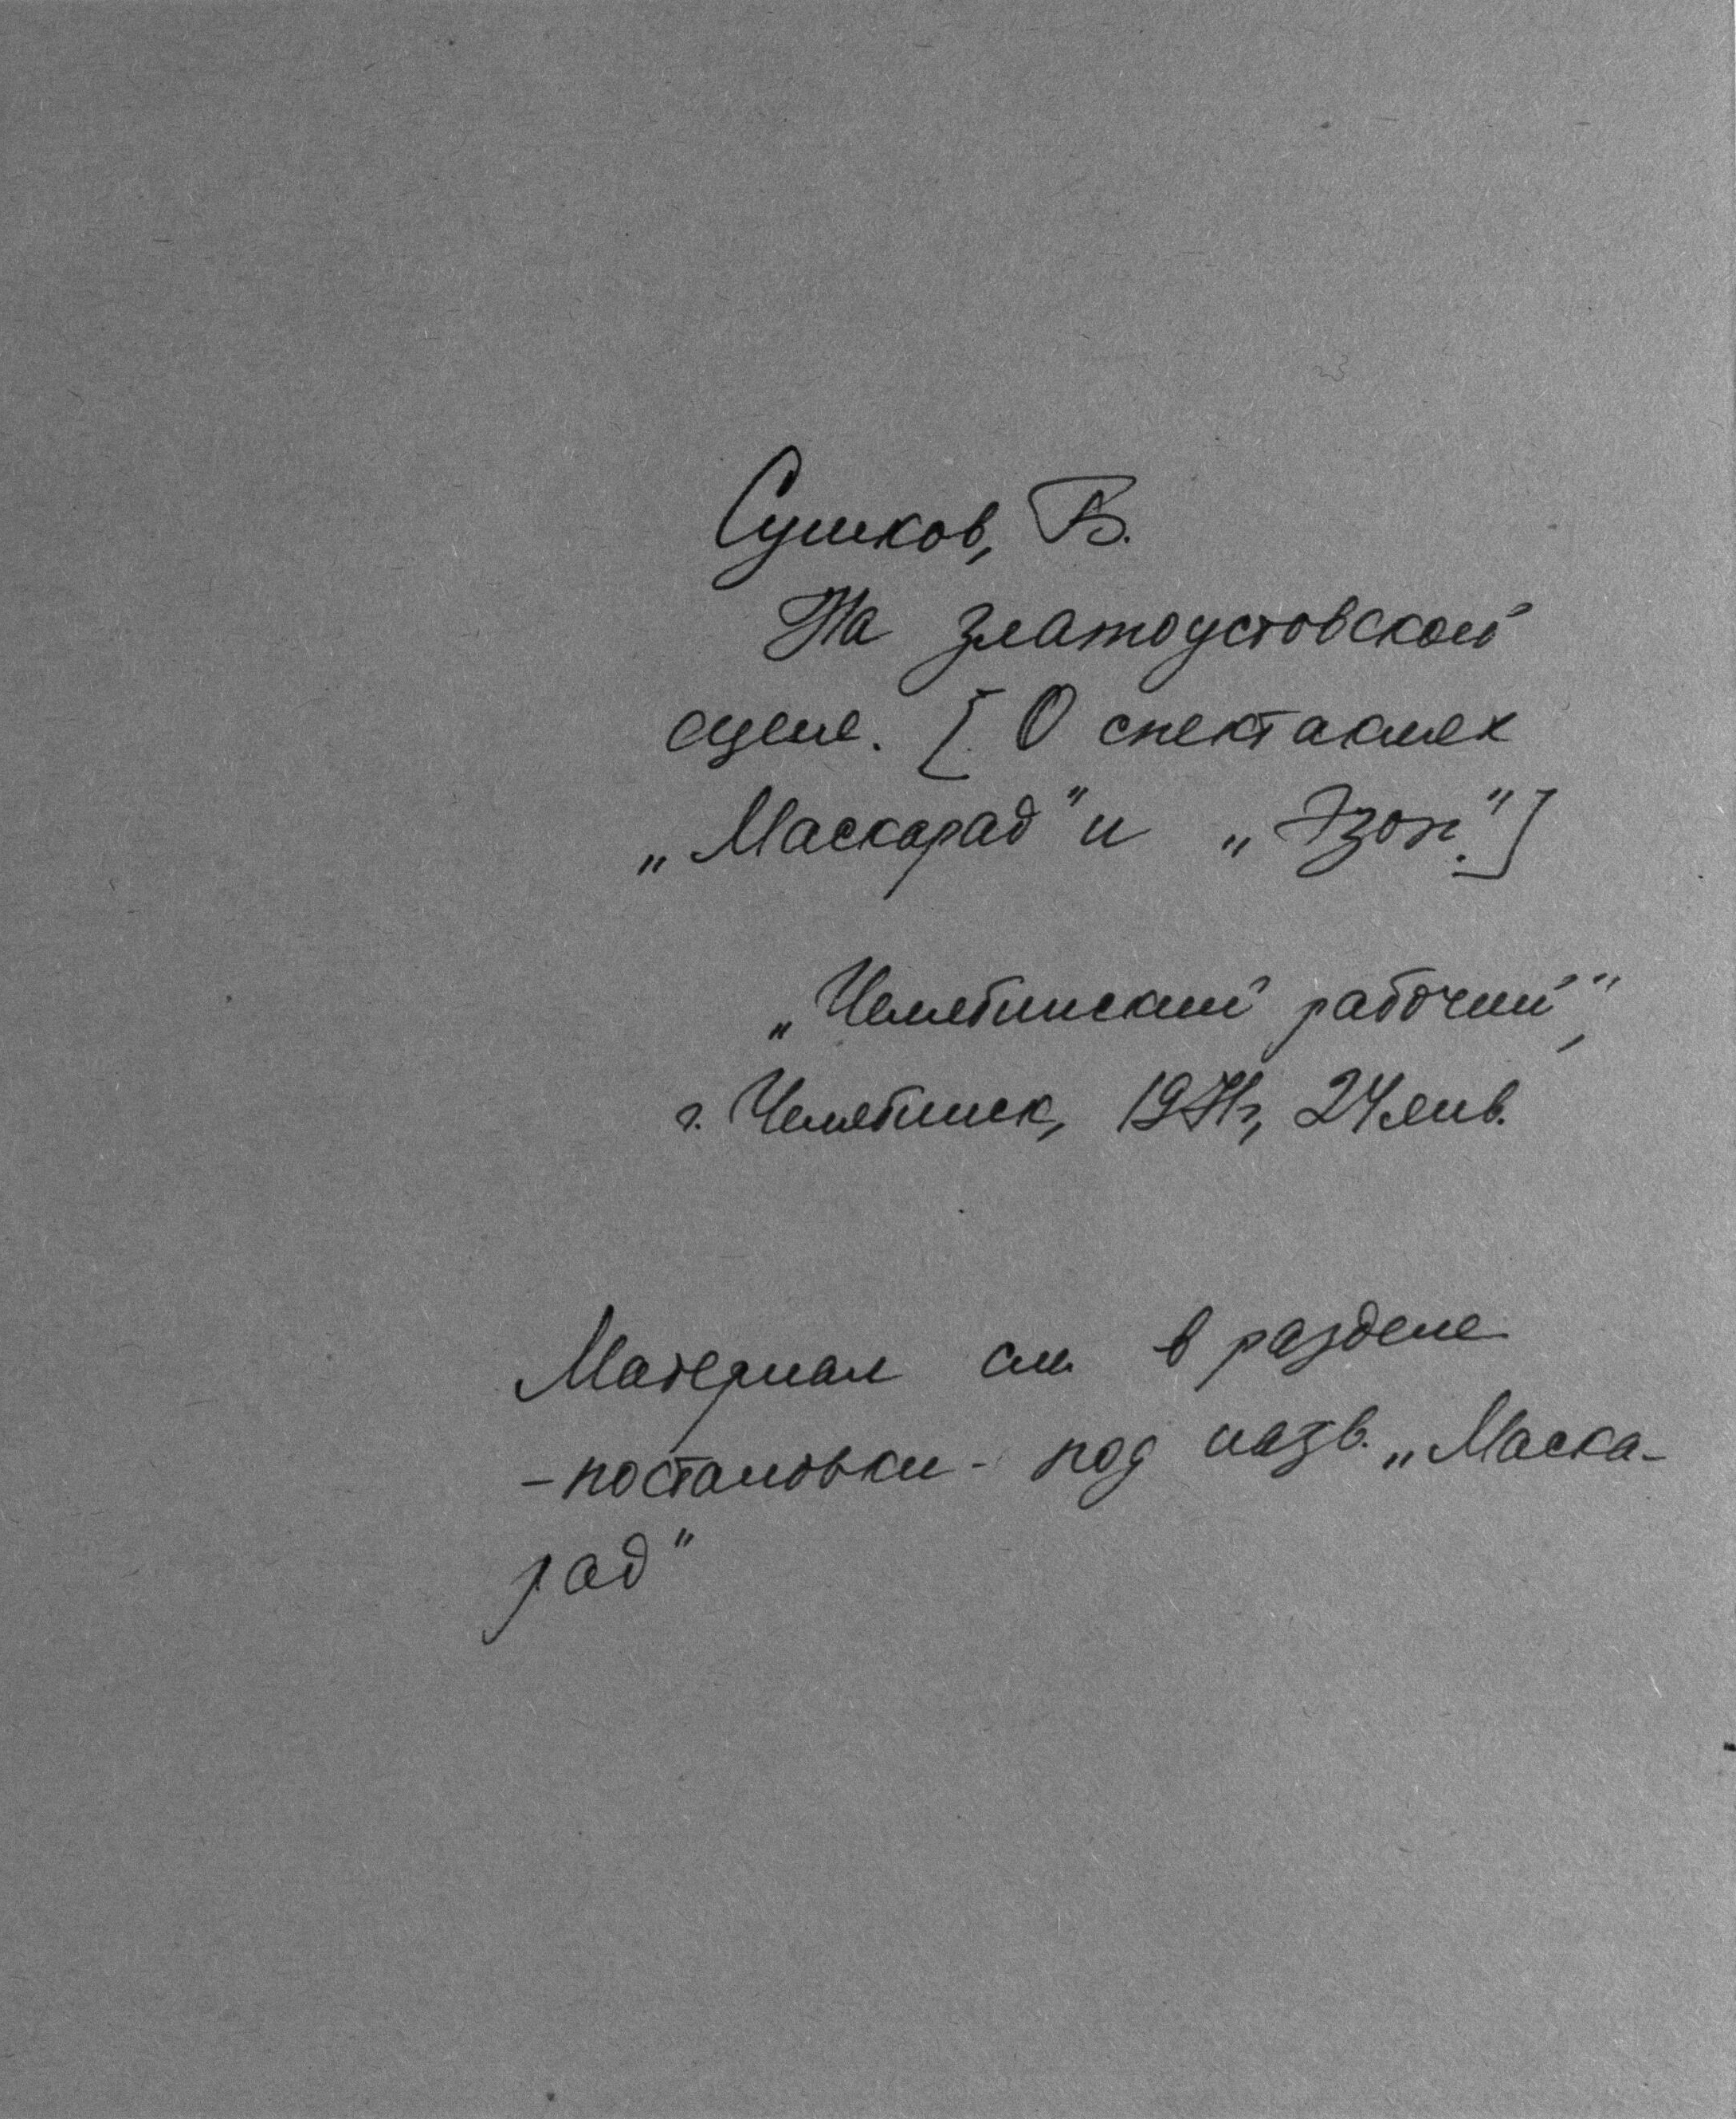 Сушков, В.
На златоустовской
сцене. [О спектаклях
„Маскарад" и „Эзоп".]
„Челябинский рабочий",
г. Челябинск, 1971г, 24 янв.
Материал см. в разделе
-постановки- под назв. „Маска-
рад"